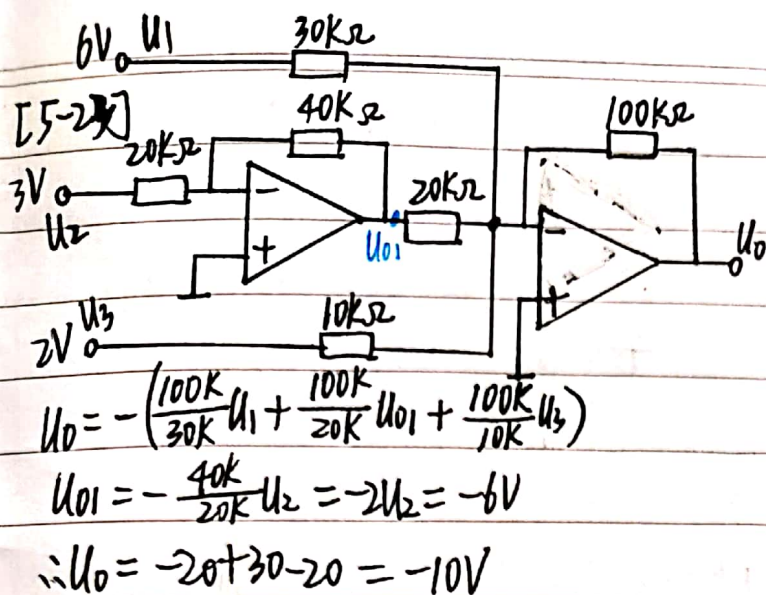 6V U1 30KΩ
[5-2]
20KΩ 40KΩ 100KΩ
3V U2 - + U01 20KΩ - + U0
2V U3 10KΩ
U0 = -(100K/30K U1 + 100K/20K U01 + 100K/10K U3)
U01 = - 40K/20K U2 = -2U2 = -6V
∴U0 = -20+30-20 = -10V